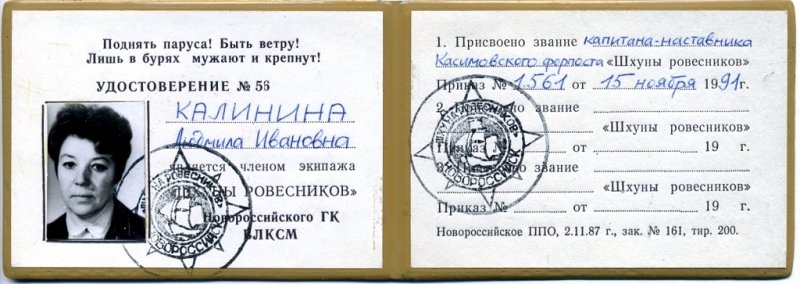 Поднять паруса! Быть ветру!
Лишь в бурях мужают и крепнут!
УДОСТОВЕРЕНИЕ № 56
КАЛИНИНА
Людмила Ивановна
является членом экипажа
«ШХУНЫ РОВЕСНИКОВ»
Новороссийского ГК
ВЛКСМ
«ШХУНА РОВЕСНИКОВ»
НОВОРОССИЙСК
1. Присвоено звание капитана-наставника
Касимовского форпоста «Шхуны ровесников»
Приказ № 1561 от 15 ноября 1991г.
2. Присвоено звание
«Шхуны ровесников»
Приказ № от 19 г.
3. Присвоено звание
«Шхуны ровесников»
Приказ № от 19 г.
«ШХУНА РОВЕСНИКОВ»
НОВОРОССИЙСК
Новороссийское ППО, 2.11.87 г., зак. № 161, тир. 200.